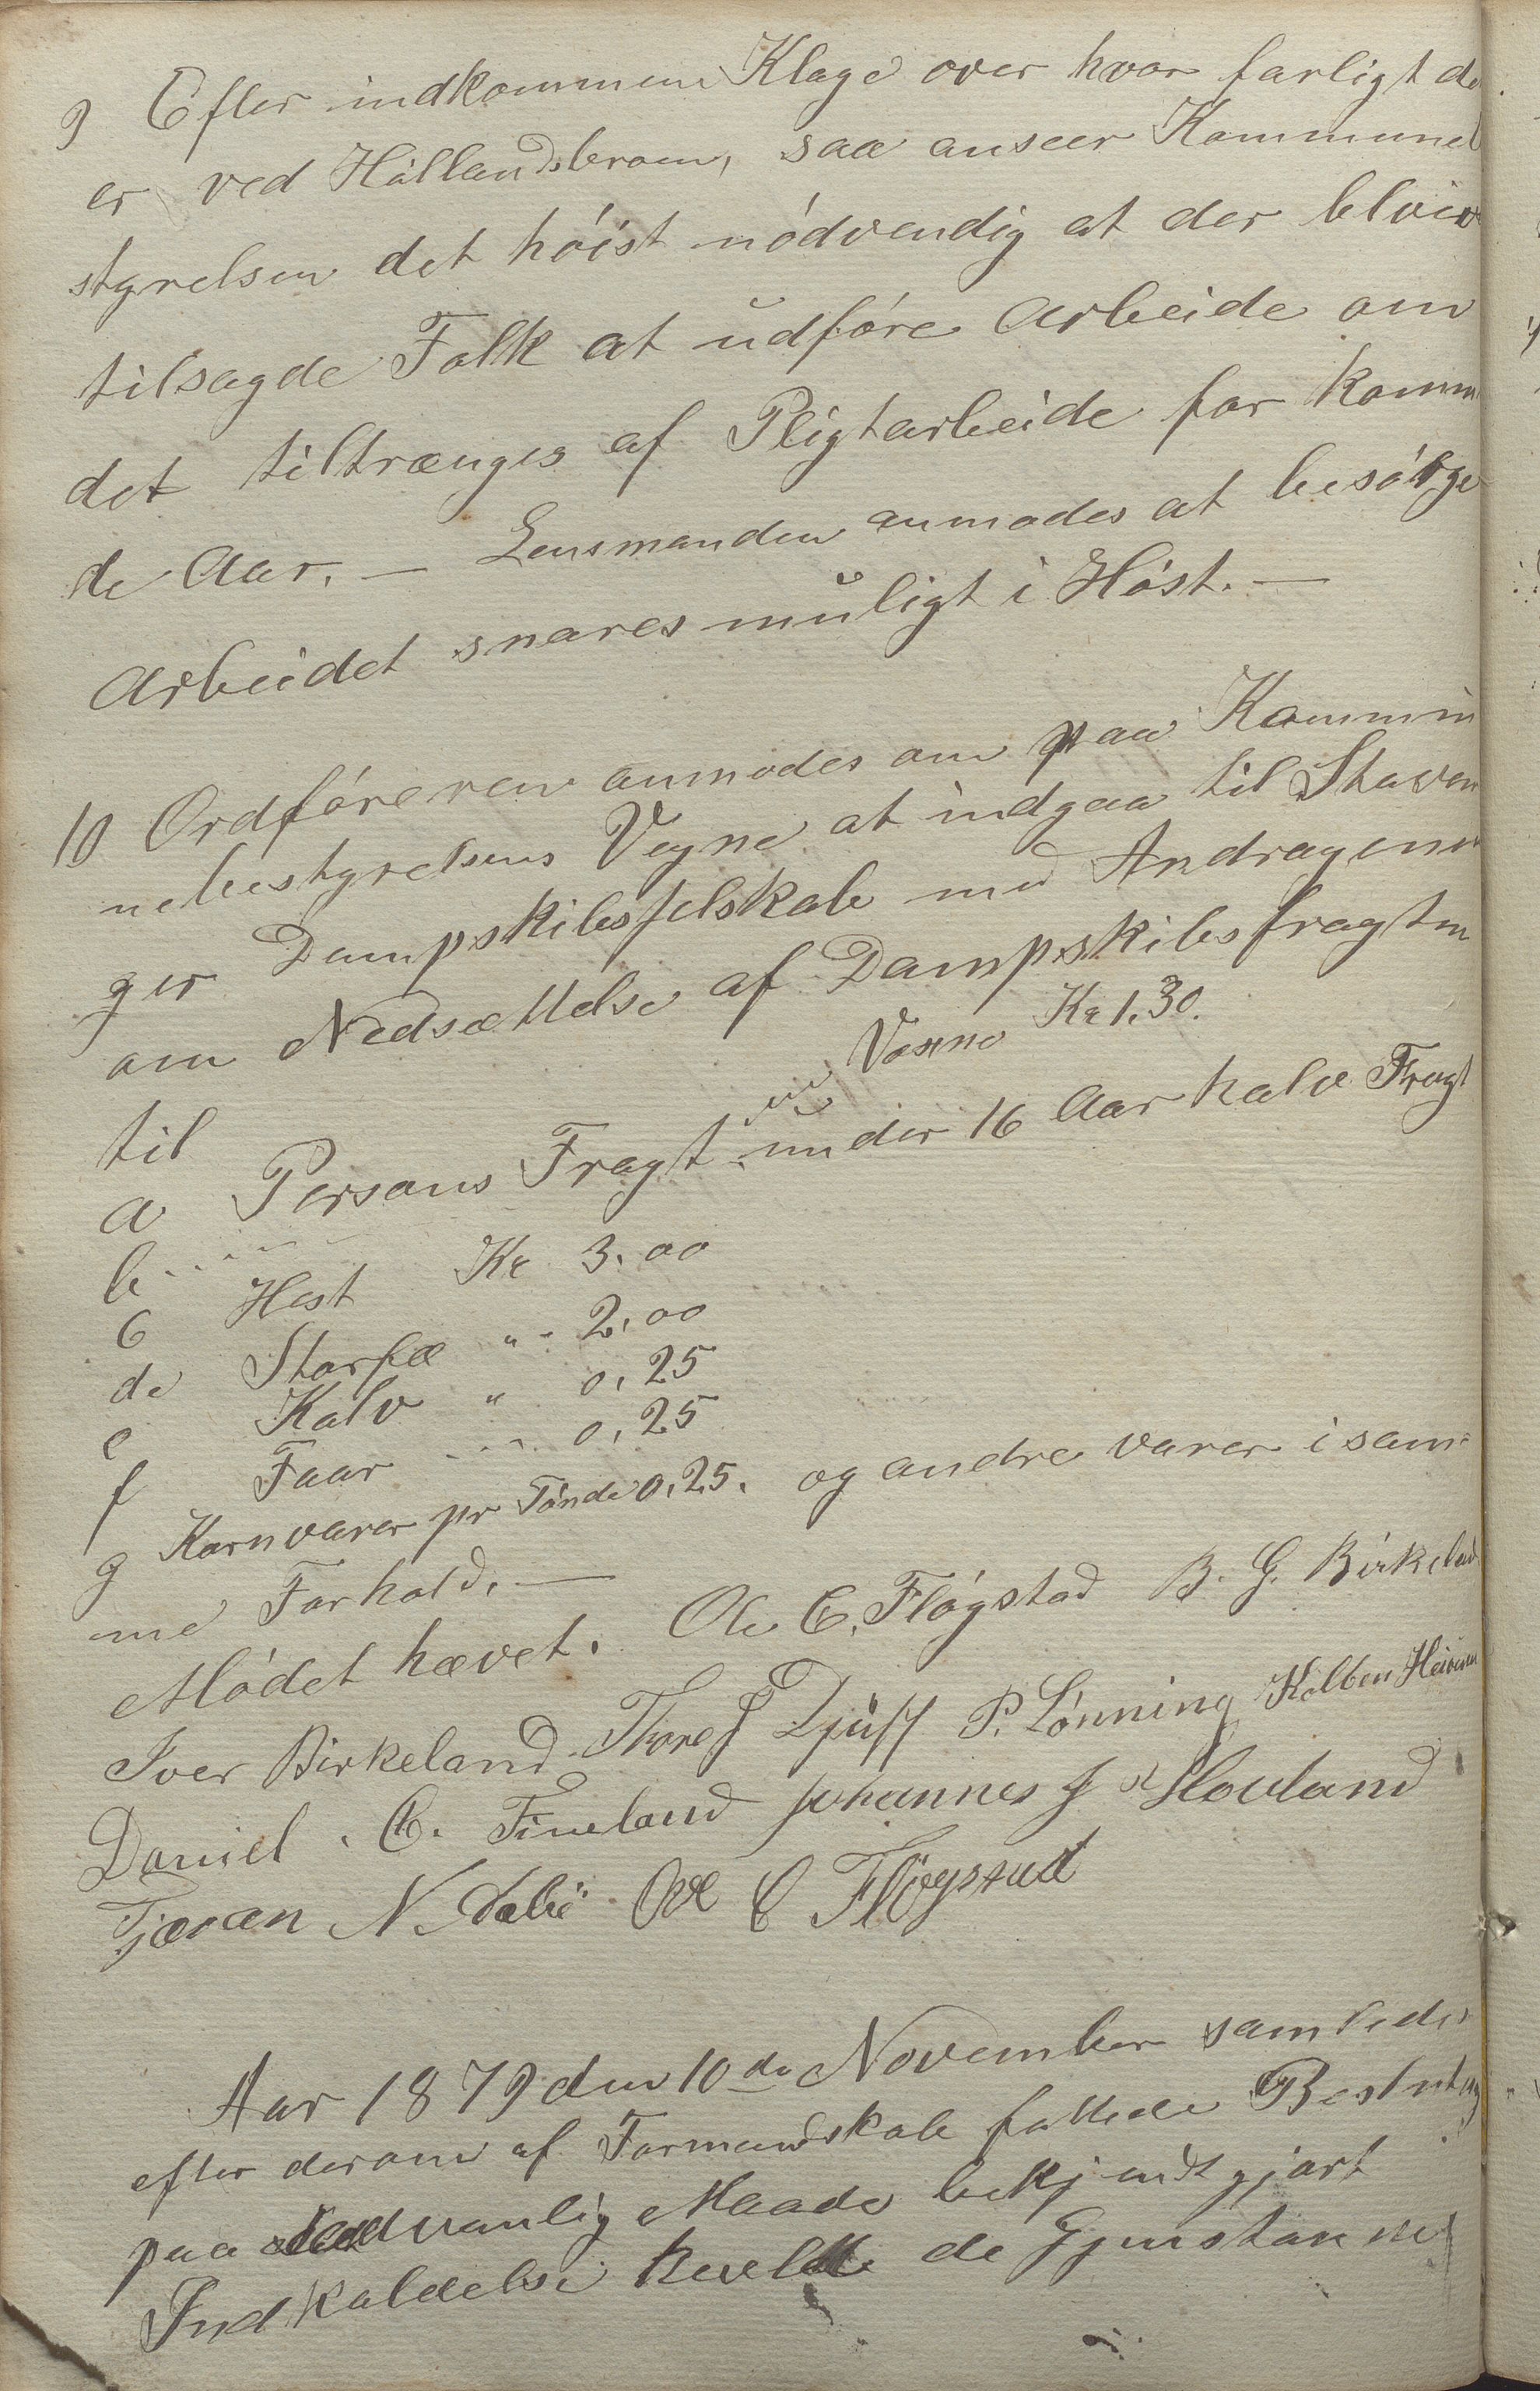 9 Efter indkommen Klage over hvor farligt de
er ved Höllandsbroen, saa anseer Kommunel
styrelsen det höist nödvendig at der bliver
tilsagde Folk at udföre Arbeide om
det tiltrænges af Pligtarbeide for komm
de Aar. — Lensmanden anmodes at besörge
Arbeidet snares muligt i Höst. —
10 Ordföreren anmodes om paa Kommu
nebestyrelsens Vegne at indgaa til Stavan
ger Dampskibsselskab med Andragende
om Nedsættelse af Dampskibsfragten
til
a Persons Fragt Voxne Kr 1.30.
b " " under 16 Aar halv Fragt
c Hest Kr 3.00
de Storfæ " " 2.00
e Kalv " 0,25
f Faar " " 0,25
g Kornvarer pr Tönde 0.25. og andre varer i sam-
me Forhold. —
Mödet hævet. Ole C. Flögstad B. G. Birkeland
Iver Birkeland Thore J Djuff P. Lönning Kolben
Daniel C. Fineland Johannes J Hovland
Tjeran N. Ole C Flögstad
Aar 1879 den 10de November samledes
efter derom af Formandskab fattede Beslutng
paa sedvanlig Maade bekjendtgjort
Indkaldelse de Gjenstan